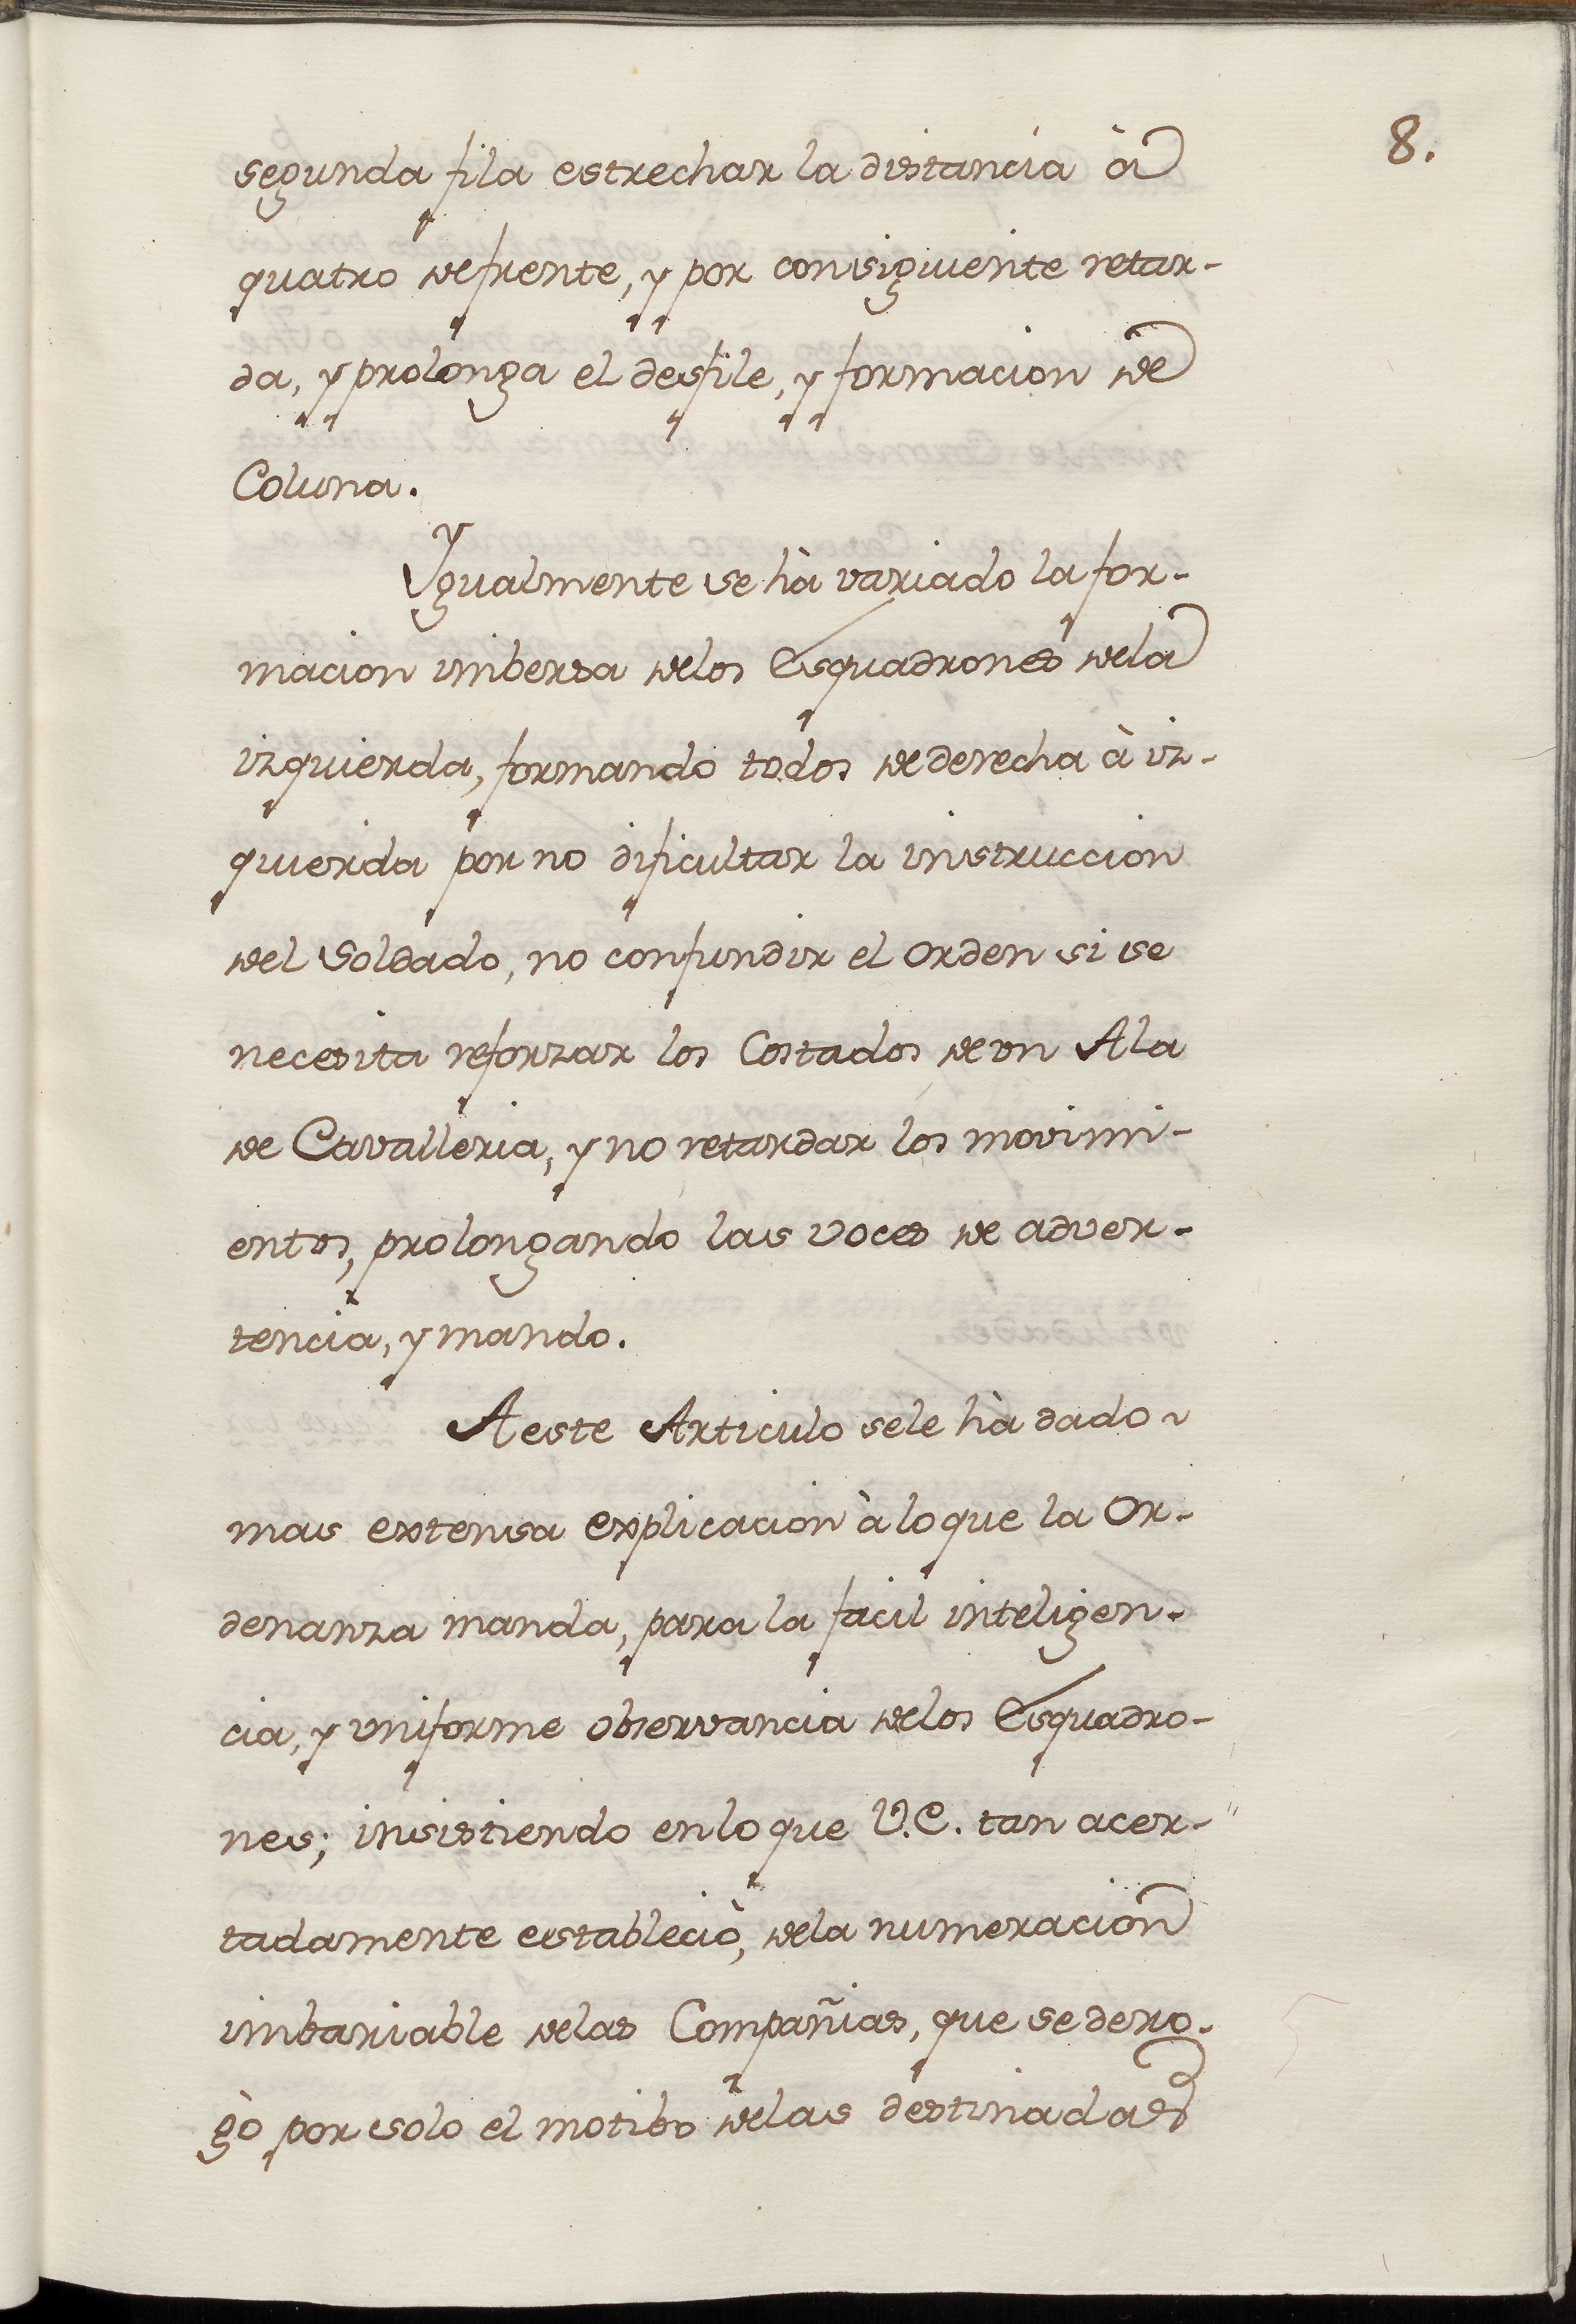 8.
segunda fila estrechar la distancia à
quatro de frente, y por consiguiente retar-
da, y prolonga el desfile, y formacion de
Coluna.
Ygualmente se hà variado la for-
macion imbersa de los Esquadrones de la
izquierda, formando todos de derecha à iz-
quierda por no dificultar la instruccion
del Soldado, no confundir el orden si se
necesita reforzar los Costados de un Ala
de Cavalleria, y no retardar los movimi-
entos, prolongando las voces de adver-
tencia, y mando.
A este Articulo se le hà dado
mas extensa explicacion à lo que la Or-
denanza manda, para la facil inteligen-
cia, y uniforme observancia de los Esquadro-
nes; insistiendo en lo que V.E. tan acer-
tadamente estableciò, de la numeracion
imbariable de las Compañias, que se dero-
gò por solo el motibo de las destinadas